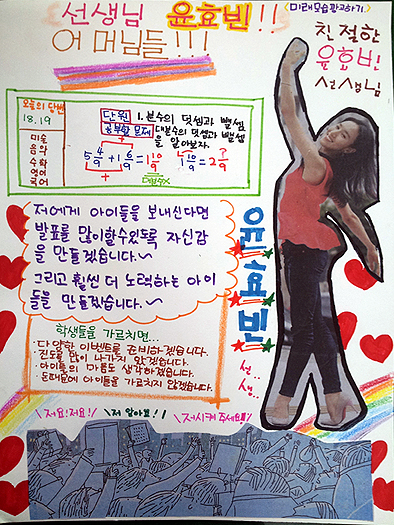 선생님 윤효빈!!
어머님들!!!
(미래모습광고하기.)
친절한
윤효빈
선생님
오늘의 당번
18.19
미술
음악
수학
영어
국어
단원 1. 분수의 덧셈과 뺄셈
공부할 문제 대분수의 덧셈과 뺄셈
을 알아보자.
저에게 아이들을 보내신다면
발표를 많이할수있도록 자신감
을 만들겠습니다~
그리고 훨씬 더 노력하는 아이
들을 만들겠습니다.~
윤효빈
선..
생..
학생들을 가르치면...
·다양한 이벤트를 준비하겠습니다.
·진도를 많이 나가지 않겠습니다.
·아이들의 마음도 생각하겠습니다.
·돈때문에 아이들을 가르치지 않겠습니다.
\저요!저요!/ \저 알아요!!/ \저시켜 주세요!!/